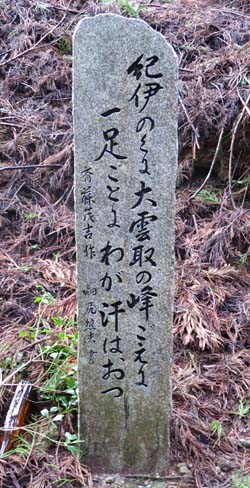 紀伊のくに大雲取の峰ごえに
一足ごとにわが汗はおつ
斎藤茂吉作
書